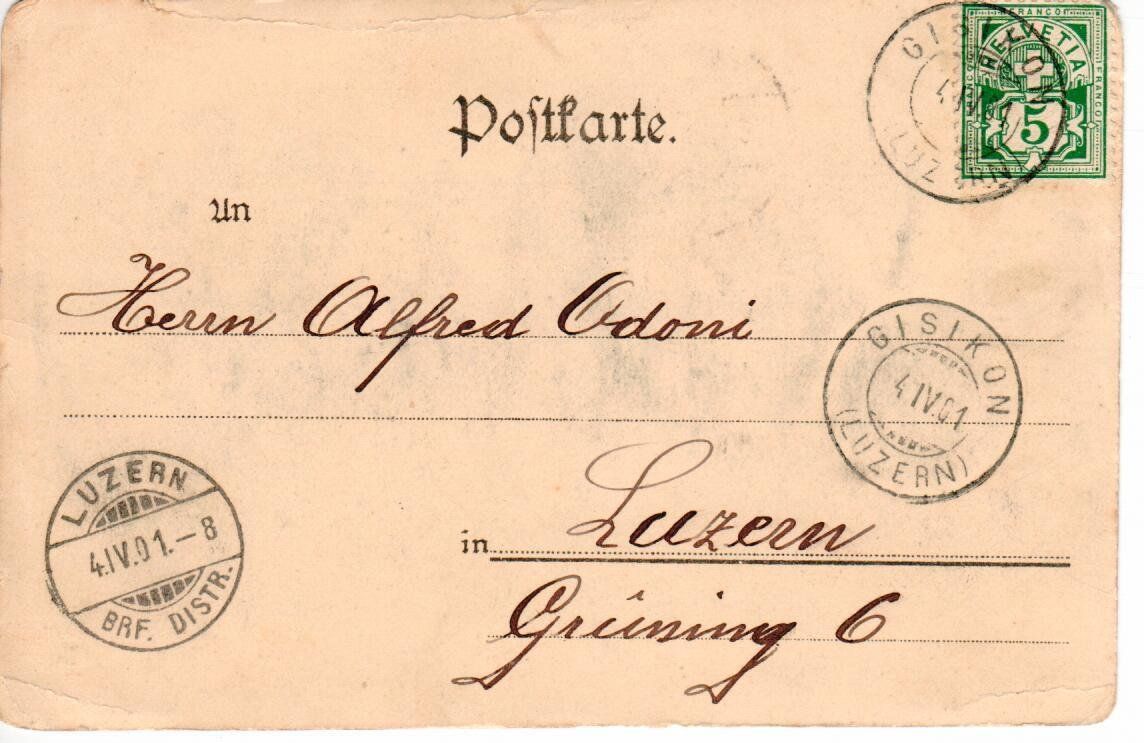 FRANCO
HELVETIA
FRANCO
FRANCO
5
GISIKON
4 IV 01
(LUZERN)
Postkarte.
An
Herrn Alfred Odoni
GISIKON
4 IV.01
(LUZERN)
LUZERN
4.IV.01.–8
BRF. DISTR.
in Luzern
Grüning 6